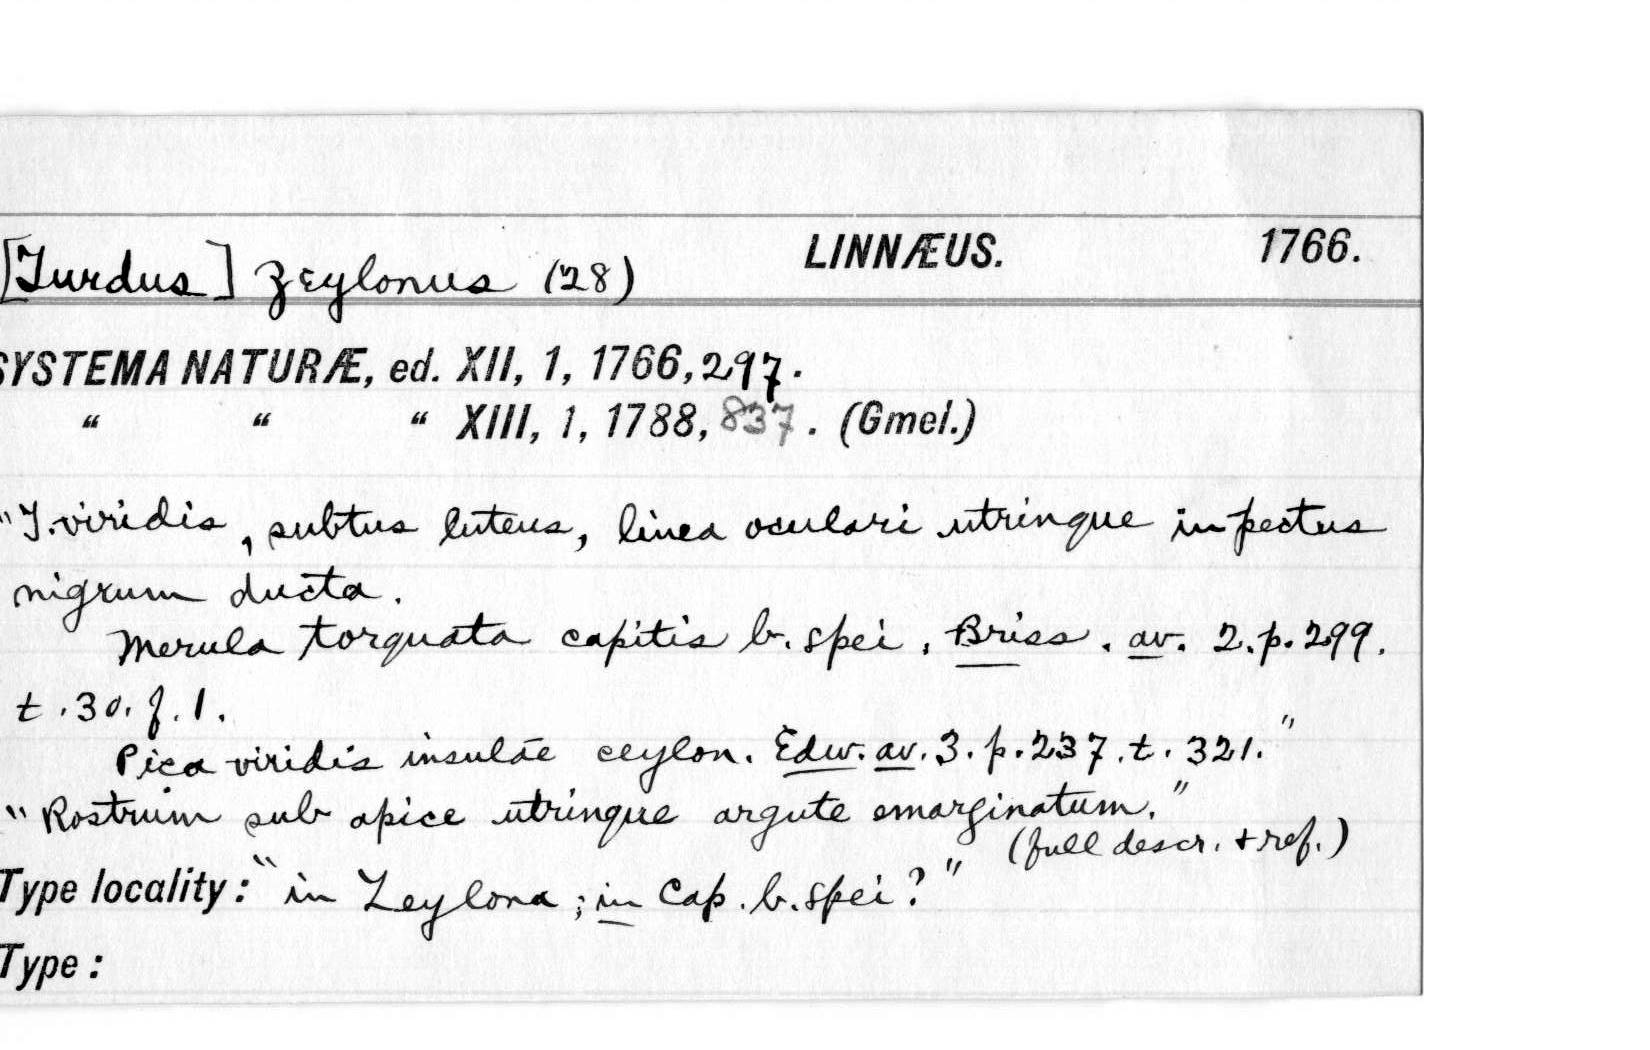 [Turdus] zeylonus (28) LINNÆUS. 1766.
SYSTEMA NATURÆ, ed. XII, 1, 1766, 297.
“ “ “ XIII, 1, 1788, 837. (Gmel.)
"T. viridis, subtus luteus, linea oculari utrinque in pectus
nigrum ducta.
Merula torquata capitis b. spei. Briss. av. 2. p. 299.
t. 30. f. 1.
Pica viridis insulae ceylon. Edw. av. 3. p. 237. t. 321."
"Rostrum sub apice utrinque argute emarginatum."
(full descr. + ref.)
Type locality: "in Zeylona; in Cap. b. spei?"
Type: